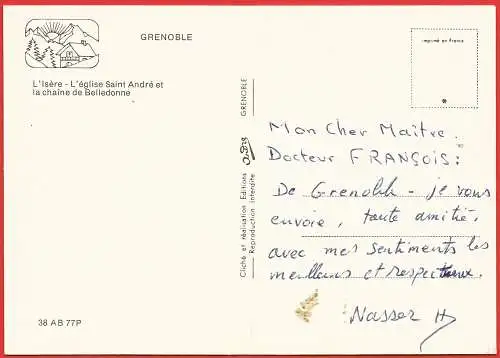 GRENOBLE
L'Isère - L'église Saint André et
la chaîne de Belledonne
38 AB 77P
Cliché et réalisation Editions
Reproduction interdite
GRENOBLE
imprimé en France
Mon Cher Maître.
Docteur FRANÇOIS:
De Grenoble - je vous
envoie, toute amitié,
avec mes sentiments les
meilleurs et respectueux.
Nasser